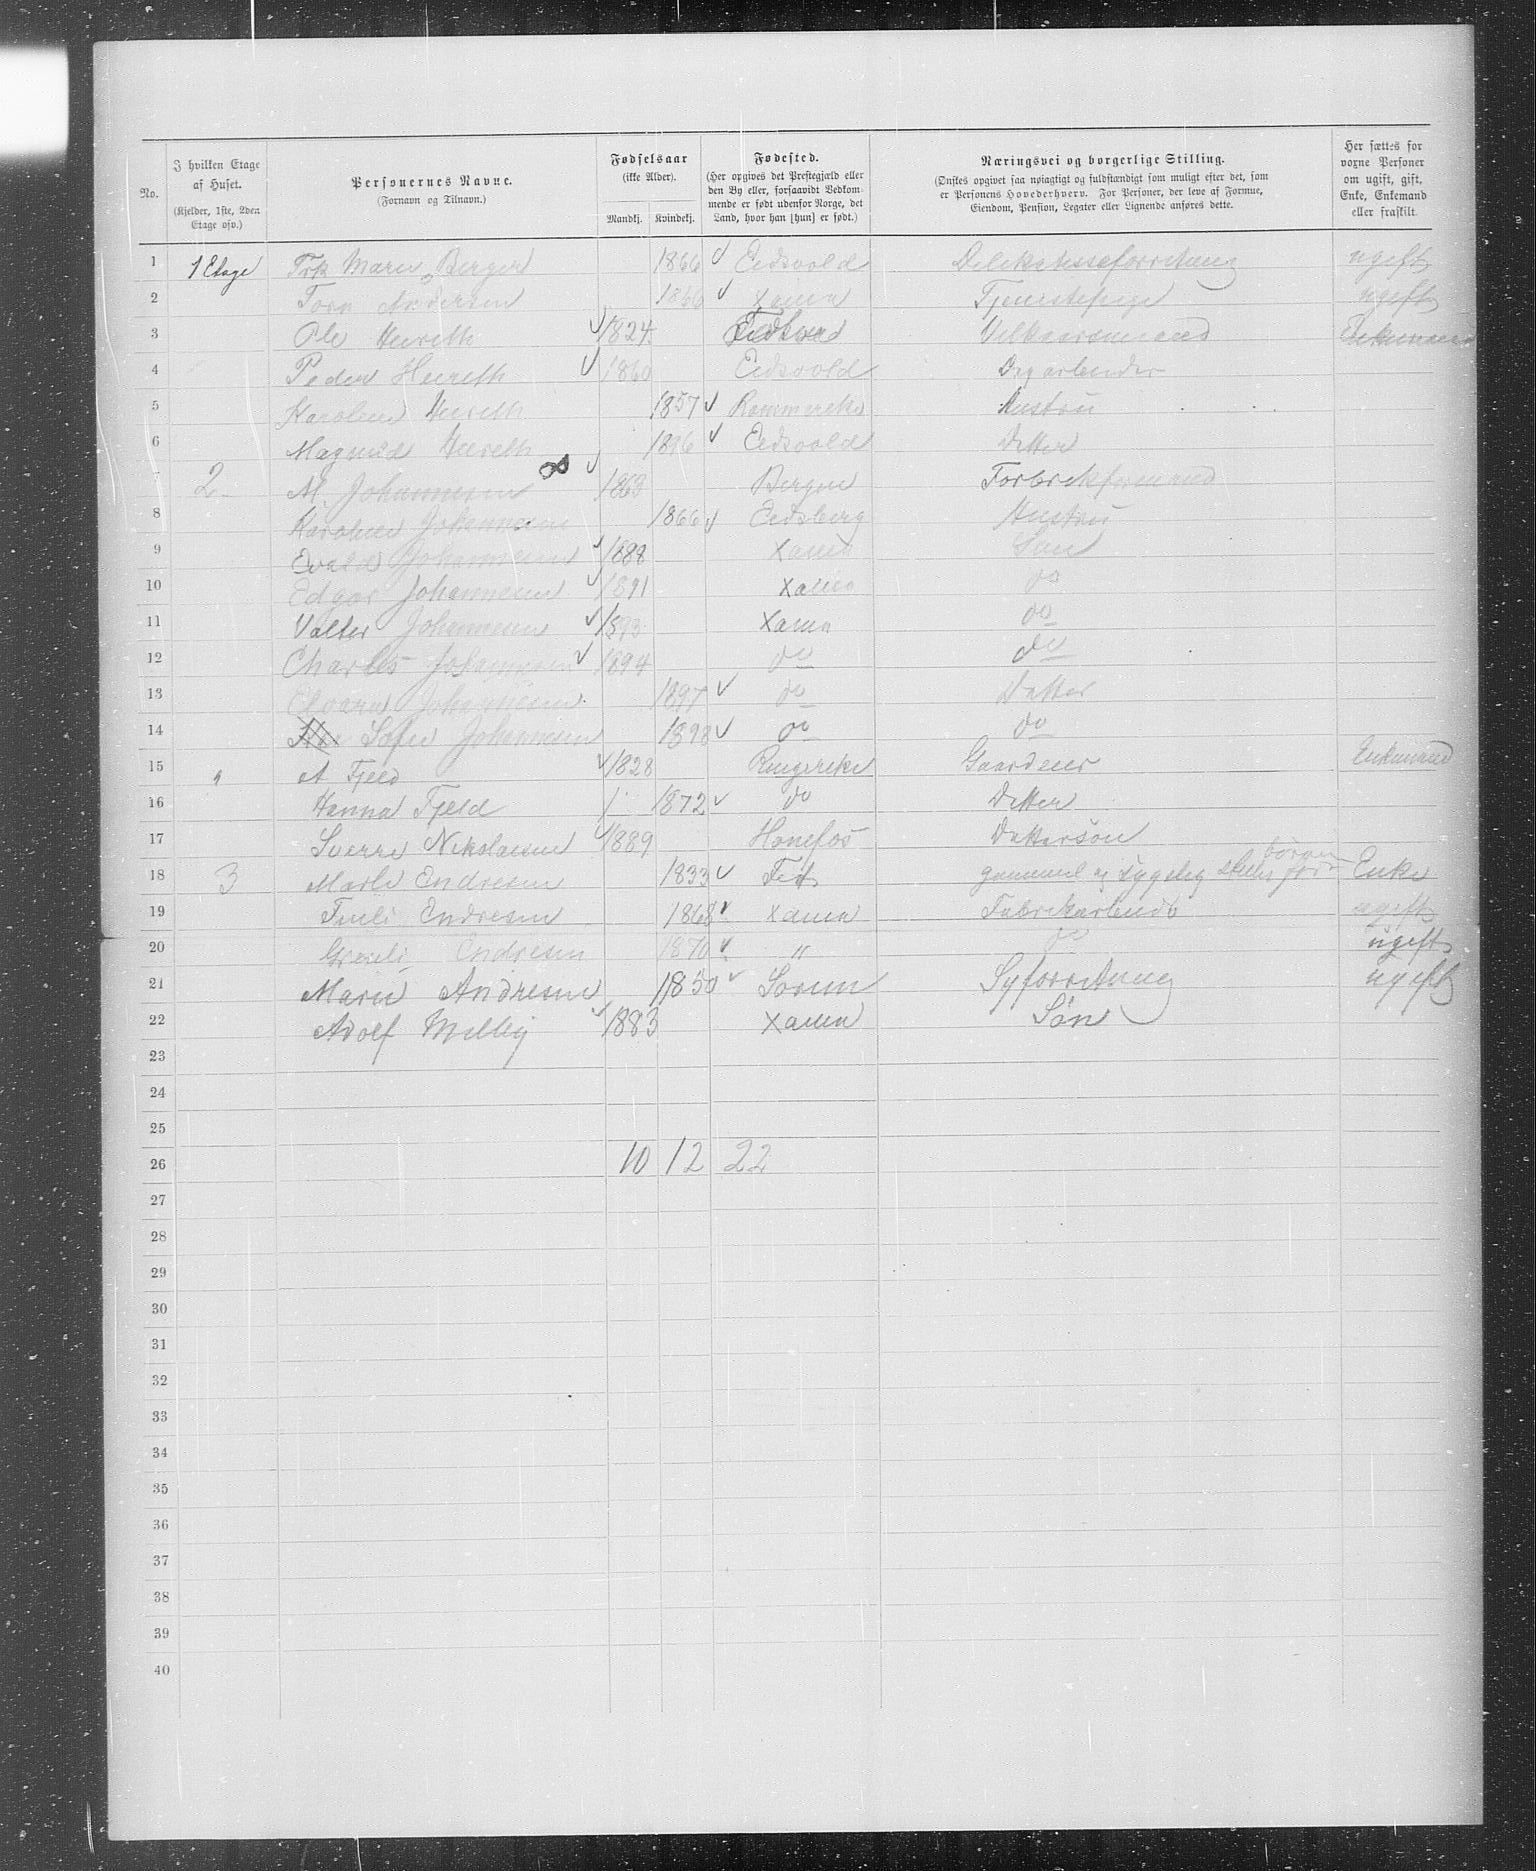 No. | I hvilken Etage af Huset. (Kjelder, 1ste, 2den Etage osv.) | Personernes Navne. (Fornavn og Tilnavn.) | Fødselsaar (ikke Alder). Mandkj. Kvindekj. | Fødested. (Her opgives det Prestegjæld eller den By eller, forsaavidt Vedkommende er født udenfor Norge, det Land, hvor han [hun] er født.) | Næringsvei og borgerlige Stilling. (Ønskes opgivet saa nøiagtigt og fuldstændigt som muligt efter det, som er Personens Hovederhverv. For Personer, der leve af Formue, Eiendom, Pension, Legater eller Lignende anføres dette. | Her sættes for voxne Personer om ugift, gift, Enke, Enkemand eller fraskilt.
1 1 Etage Frk Maren Berger 1866 Eidsvold Delikatesseforretning ugift
2 Tora Andersen 1866 Xania Tjenestepige ugift
3 Ole 1824 Enkemand
4 Peder 1860 Eidsvold
5 Karoline 1857 Rommerike Hustru
6 Magnild 1896 Eidsvold Datter
7 2 M. Johannesen 1863 Bergen
8 Karoline Johannesen 1866 Eidsberg Hustru
9 Evald Johannesen 1888 Xania Søn
10 Edgar Johannesen 1891 Xania do
11 Valter Johannesen 1893 Xania do
12 Charles Johannesen 1894 do do
13 Johannesen 1897 do Datter
14 Sofie Johannesen 1898 do do
15 " A Fjeld 1828 Ringerike Gaardeier Enkemand
16 Hanna Fjeld 1872 do Datter
17 Sverre Nikolaisen 1889 Hønefos Dattersøn
18 3 Marte Endresen 1833 Fet gammel og sygelig børn Enke
19 Endresen 1868 Xania Fabrikarbeide ugift
20 Endresen 1870 " do ugift
21 Marie Andresen 1850 Sørum Syforretning ugift
22 Adolf Melby 1883 Xania Søn
23
24
25
26 10 12 22
27
28
29
30
31
32
33
34
35
36
37
38
39
40